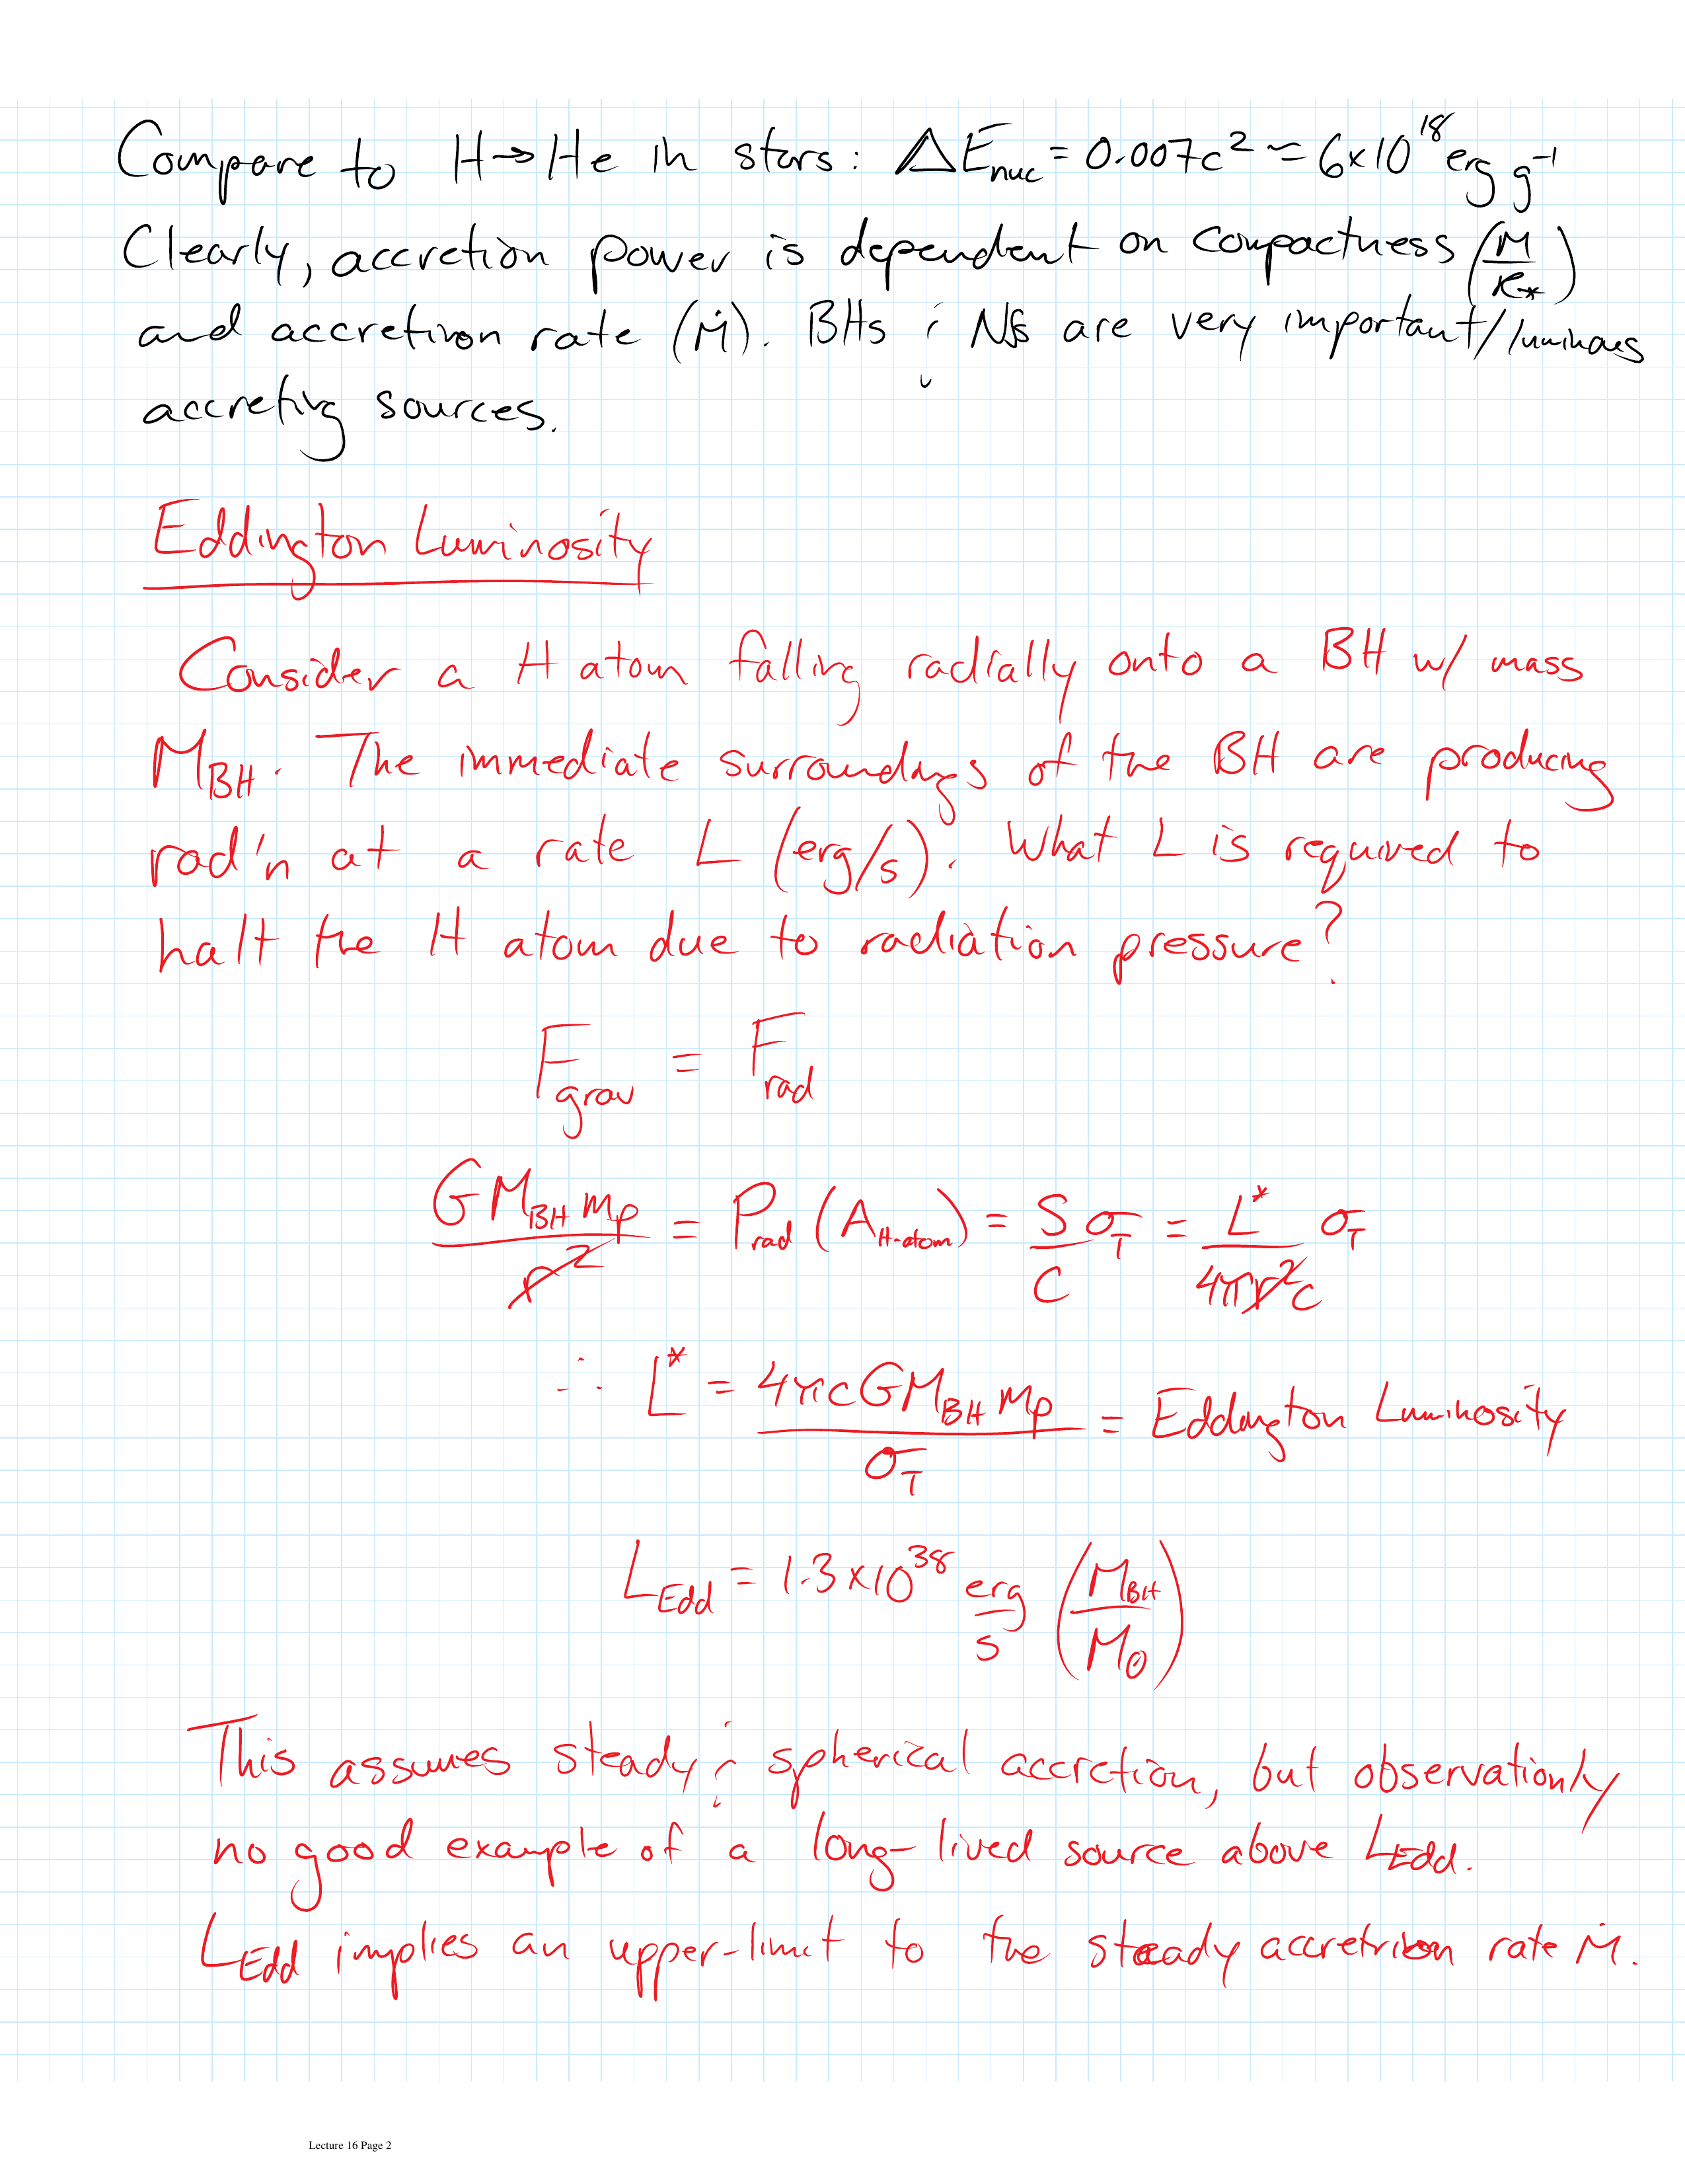 Compare to H→He in stars: ΔE_nuc = 0.007c² ≃ 6×10¹⁸ erg g⁻¹
Clearly, accretion power is dependent on compactness (M/R_*)
and accretion rate (Ṁ). BHs & NSs are very important/luminous
accreting sources.
Eddington Luminosity
Consider a H atom falling radially onto a BH w/ mass
M_BH. The immediate surroundings of the BH are producing
rad'n at a rate L (erg/s). What L is required to
halt the H atom due to radiation pressure?
F_grav = F_rad
GM_BH m_p / r² = P_rad (A_H-atom) = S/c σ_T = L*/4πr²c σ_T
∴ L* = 4πcGM_BH m_p / σ_T = Eddington Luminosity
L_Edd = 1.3×10³⁸ erg/s (M_BH/M_⊙)
This assumes steady & spherical accretion, but observationly
no good example of a long-lived source above L_Edd.
L_Edd implies an upper-limit to the steady accretion rate Ṁ.
Lecture 16 Page 2